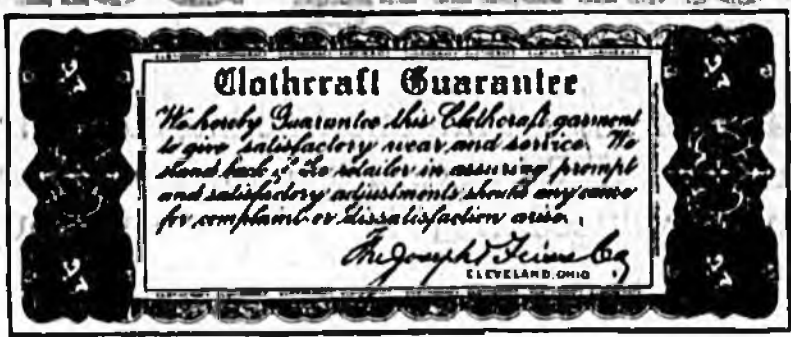 Clothcraft Guarantee
We hereby Guarantee this Clothcraft garment
to give satisfactory wear and service. We
stand back of the retailer in assuring prompt
and satisfactory adjustments should any cause
for complaint or dissatisfaction arise.
The Joseph & Feiss Co
CLEVELAND, OHIO